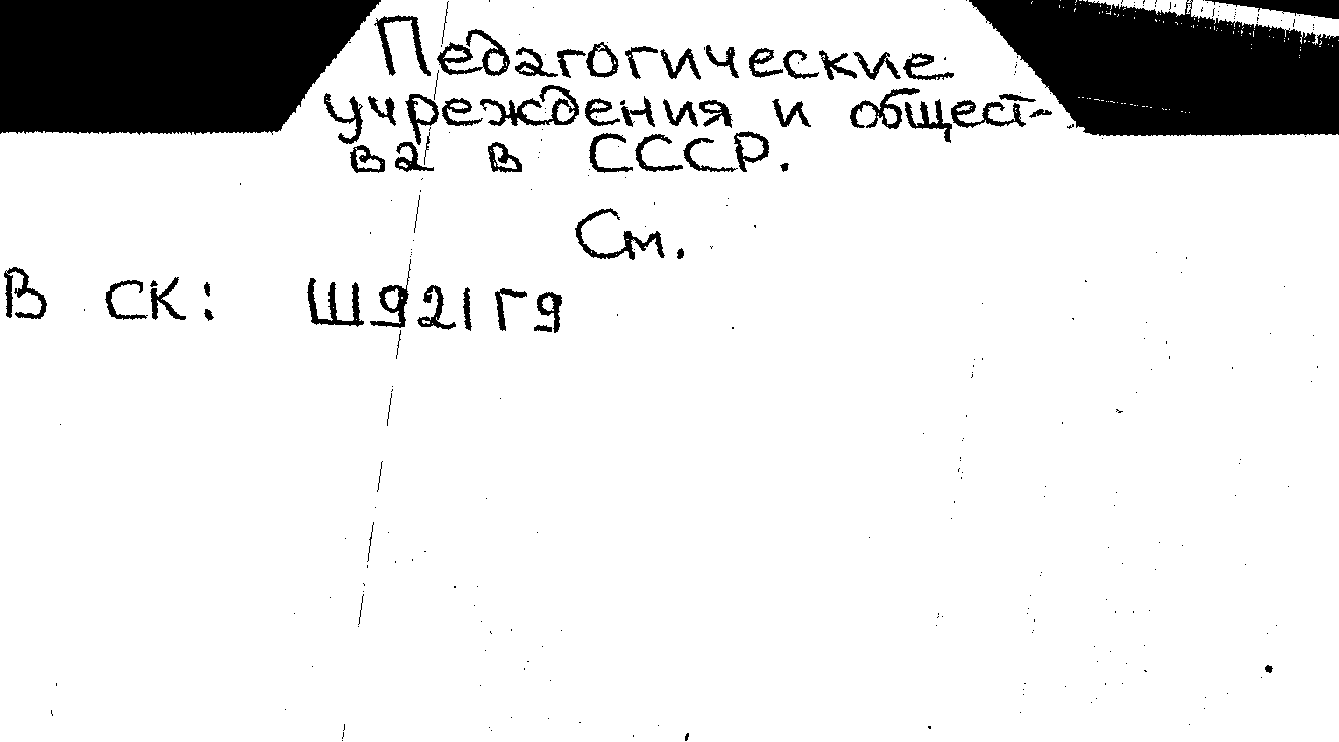 Педагогические
учреждения и общест-
ва в СССР.
См.
В СК: Ш921Г9